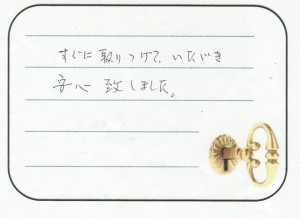 すぐに取りつけて、いただき
安心致しました。